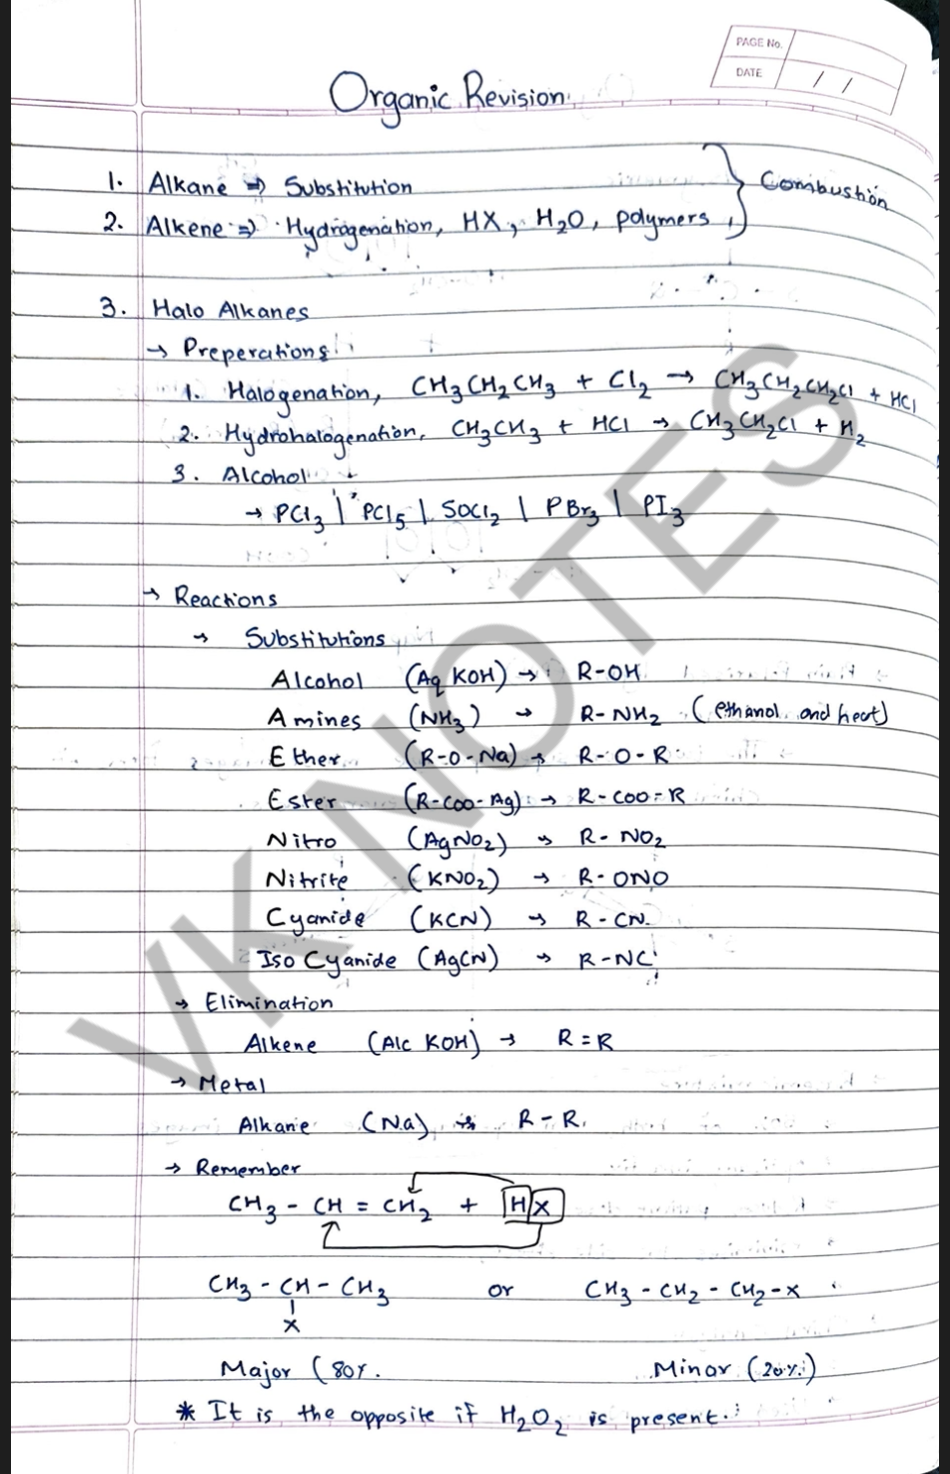 PAGE No.
DATE / /
Organic Revision
1. Alkane ⇒ Substitution
2. Alkene ⇒ Hydrogenation, HX, H₂O, polymers } Combustion
3. Halo Alkanes
→ Preperations
1. Halogenation, CH₃CH₂CH₃ + Cl₂ → CH₃CH₂CH₂Cl + HCl
2. Hydrohalogenation, CH₃CH₃ + HCl → CH₃CH₂Cl + H₂
3. Alcohol
→ PCl₃ | PCl₅ | SOCl₂ | PBr₃ | PI₃
→ Reactions
→ Substitutions
Alcohol (Aq KOH) → R-OH
Amines (NH₃) → R-NH₂ (ethanol and heat)
Ether (R-O-Na) → R-O-R
Ester (R-COO-Ag) → R-COO-R
Nitro (AgNO₂) → R-NO₂
Nitrite (KNO₂) → R-ONO
Cyanide (KCN) → R-CN
Iso Cyanide (AgCN) → R-NC
→ Elimination
Alkene (Alc KOH) → R=R
→ Metal
Alkane (Na) → R-R
→ Remember
CH₃ - CH = CH₂ + HX
CH₃ - CH - CH₃ or CH₃ - CH₂ - CH₂ - X
X
Major (80%. Minor (20%)
* It is the opposite if H₂O₂ is present.
VK NOTES